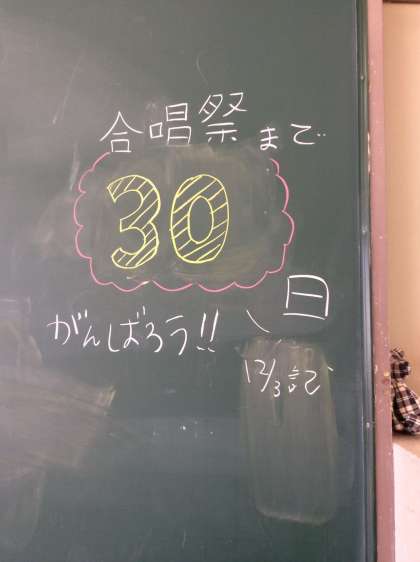 合唱祭まで
30
日
がんばろう!!
12/3記